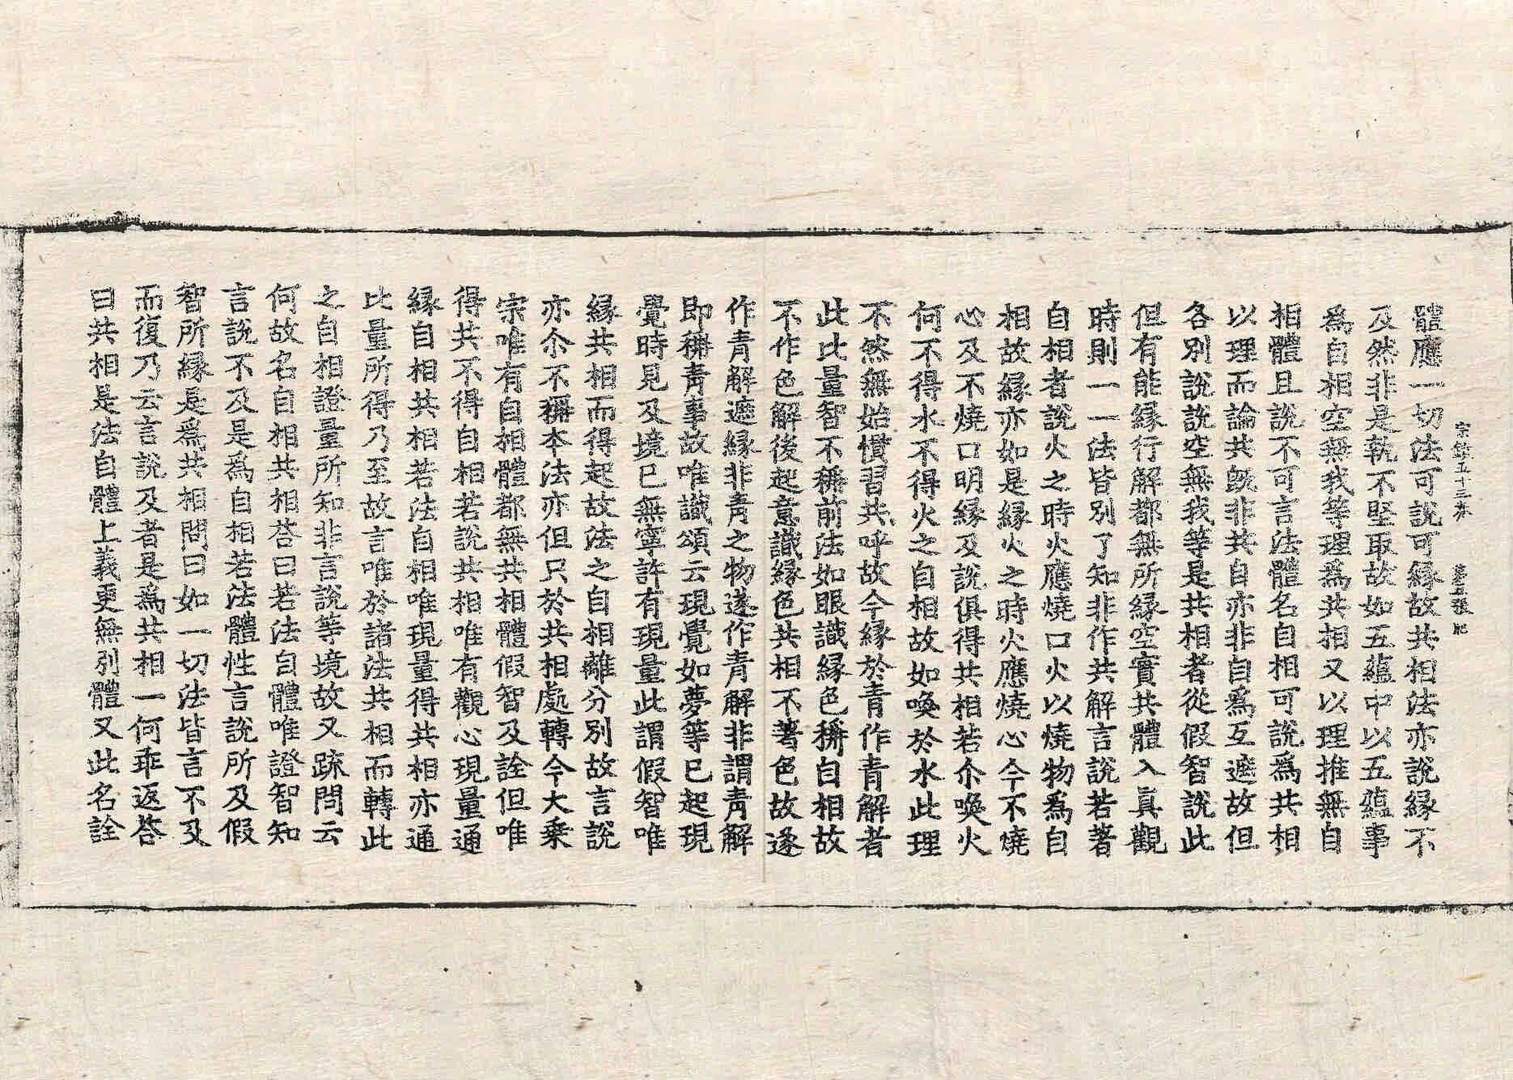 宗鏡五十三卷 第五張 肥
體應一切法可說可緣故共相法亦說緣不
及然非是執不堅取故如五蘊中以五蘊事
爲自相空無我等理爲共相又以理推無自
相體且說不可言法體名自相可說爲共相
以理而論共旣非共自亦非自爲互遮故但
各別說說空無我等是共相者從假智說此
但有能緣行解都無所緣空實共體入眞觀
時則一一法皆別了知非作共解言說若著
自相者說火之時火應燒口火以燒物爲自
相故緣亦如是緣火之時火應燒心今不燒
心及不燒口明緣及說俱得共相若尒喚火
何不得水不得火之自相故如喚於水此理
不然無始慣習共呼故今緣於青作青解者
此比量智不稱前法如眼識緣色稱自相故
不作色解後起意識緣色共相不著色故遂
作青解遮緣非青之物遂作青解非謂青解
即稱青事故唯識頌云現覺如夢等已起現
覺時見及境已無寧許有現量此謂假智唯
緣共相而得起故法之自相離分別故言說
亦尒不稱本法亦但只於共相處轉今大乘
宗唯有自相體都無共相體假智及詮但唯
得共不得自相若說共相唯有觀心現量通
緣自相共相若法自相唯現量得共相亦通
比量所得乃至故言唯於諸法共相而轉此
之自相證量所知非言說等境故又䟽問云
何故名自相共相荅曰若法自體唯證智知
言說不及是爲自相若法體性言說所及假
智所緣是爲共相問曰如一切法皆言不及
而復乃云言說及者是爲共相一何乖返荅
曰共相是法自體上義更無別體又此名詮